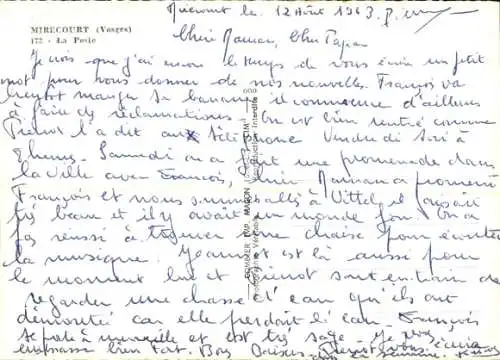 Mirecourt le 12 Août 1963.
MIRECOURT (Vosges)
172 - La Poste
Chère Maman, Cher Papa
Je crois que j'ai encore le temps de vous écrire un petit
mot pour vous donner de nos nouvelles. François va
bientôt manger sa banane, il commence d'ailleurs
à faire des réclamations. On est bien rentré comme
Pierrot l'a dit au téléphone Vendredi soir à
Samedi on a fait une promenade dans
la ville avec François, Maman a promené
François et nous sommes allés à Vittel, il faisait
très beau et il y avait un monde fou. On a
pas réussi à trouver une chaise pour écouter
la musique. Jeannot est là aussi pour
le moment lui et Pierrot sont entrain de
regarder une chasse d'eau qu'ils ont
démontée car elle perdait l'eau. François
se porte à merveille et est très sage. Je vous
embrasse bien fort. Bons Baisers
COMBIER IMP. MACON
Reproduction Interdite